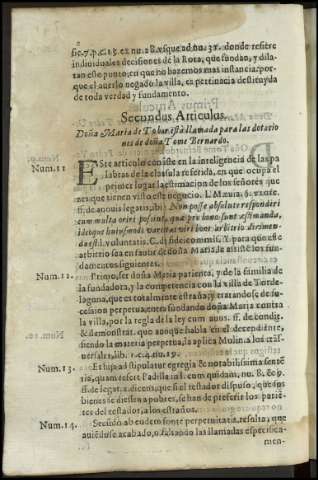 2
donde refiere
indiuiduales decisiones de la Rota, que fundan, y dila-
tan este punto; en que no hazemos mas instancia; por-
que el auerlo negado la villa, es pertinacia destituyda
de toda verdad y fundamento.
Secundus Articulus.
Doña Maria de Tobar està llamada para las dotacio
nes de doña Tomè Bernardo.
Num. 11
ESte articulo consiste en la inteligencia de las pa
labras de la clausula referida, en que ocupa el
primer lugar la estimacion de los señores jue
zes que tienen visto este negocio.
ff. de annuis legatis, ibi: Non posse absolute responderi
cum multa oriri possint, quæ pro bono sunt æstimanda,
idque huiusmodi varietat viri boni arbitrio dirimen-
da est. voluntatis. C. de fideicommis. Y para que este
arbitrio sea en fauor de doña Maria, le assisten los fun
damentos siguientes.
Num. 12.
Primo, ser doña Maria parienta, y de la familia de
la fundadora, y la competencia con la villa de Torde-
laguna, que es totalmente estraña; y tratandose de suc-
cesion perpetua, entra fundando doña Maria contra
la villa, por la regla de la ley cum auus. ff. de condit.
& demonstrat. que aunque habla en el decendiente,
siendo la materia perpetua, la aplica Molin. a los tras-
uersales, lib. 1. c. 4. nu. 19.
Num. 13.
Et hîc adstipulatur egregia & notabilissima senté
tia, quam refert
ff. de legat. 2. dicens, que si el testador dispuso, que sus
bienes se diessen a pobres, se han de preferir los parié-
tes del testador, a los estraños.
Num. 14.
Secundò ab eodem fonte perpetuitatis resulta, que
auiendose acabado, o faltando las llamadas especifica-
men-